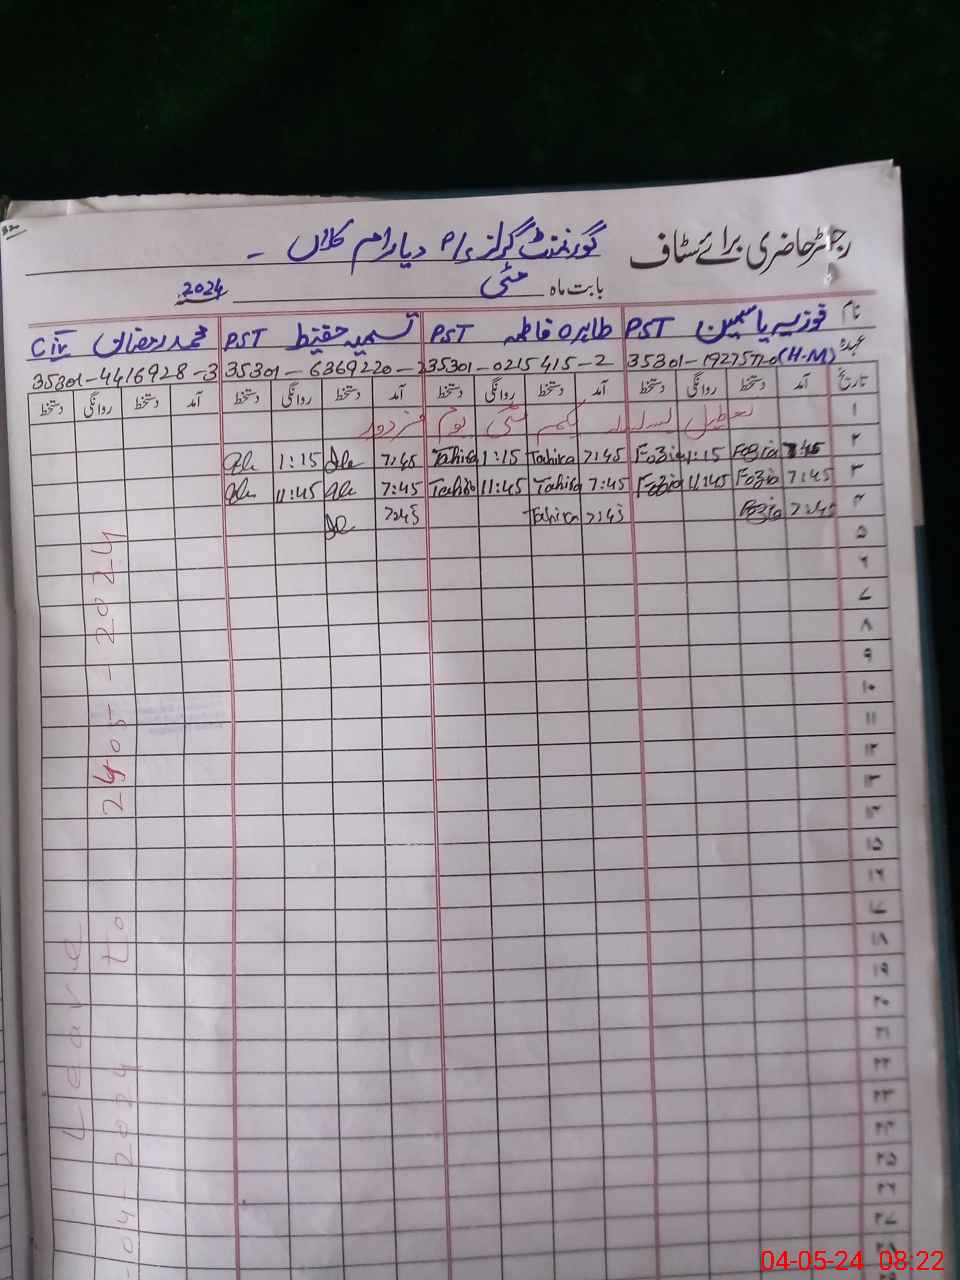 رجسٹر حاضری برائے سٹاف گورنمنٹ گرلز P/S دیا رام کلاں
بابت ماہ مئی 2024
نام فوزیہ یاسمین PST طاہرہ فاطمہ PST تسمیہ حفیظ PST محمد رمضان CIV
عہدہ (H-M) 35301-1927572-0 35301-0215415-2 35301-6369220- 35301-4416928-3
تاریخ آمد دستخط روانگی دستخط آمد دستخط روانگی دستخط آمد دستخط روانگی دستخط آمد دستخط روانگی دستخط
۱ تعطیل بسلسلہ یکم مئی یوم مزدور
۲ 7:45 Fozia 1:15 Fozia 7:45 Tahira 1:15 Tahira 7:45 1:15
۳ 7:45 Fozia 11:45 Fozia 7:45 Tahira 11:45 Tahira 7:45 11:45
۴ 7:45 Fozia 7:45 Tahira 7:45
۵
۶
۷
۸
۹
۱۰
۱۱
۱۲
۱۳
۱۴
۱۵
۱۶
۱۷
۱۸
۱۹
۲۰
۲۱
۲۲
۲۳
۲۴
۲۵
۲۶
۲۷
۲۸
Leave
04-2024 to 24-05-2024
04-05-24 08:22